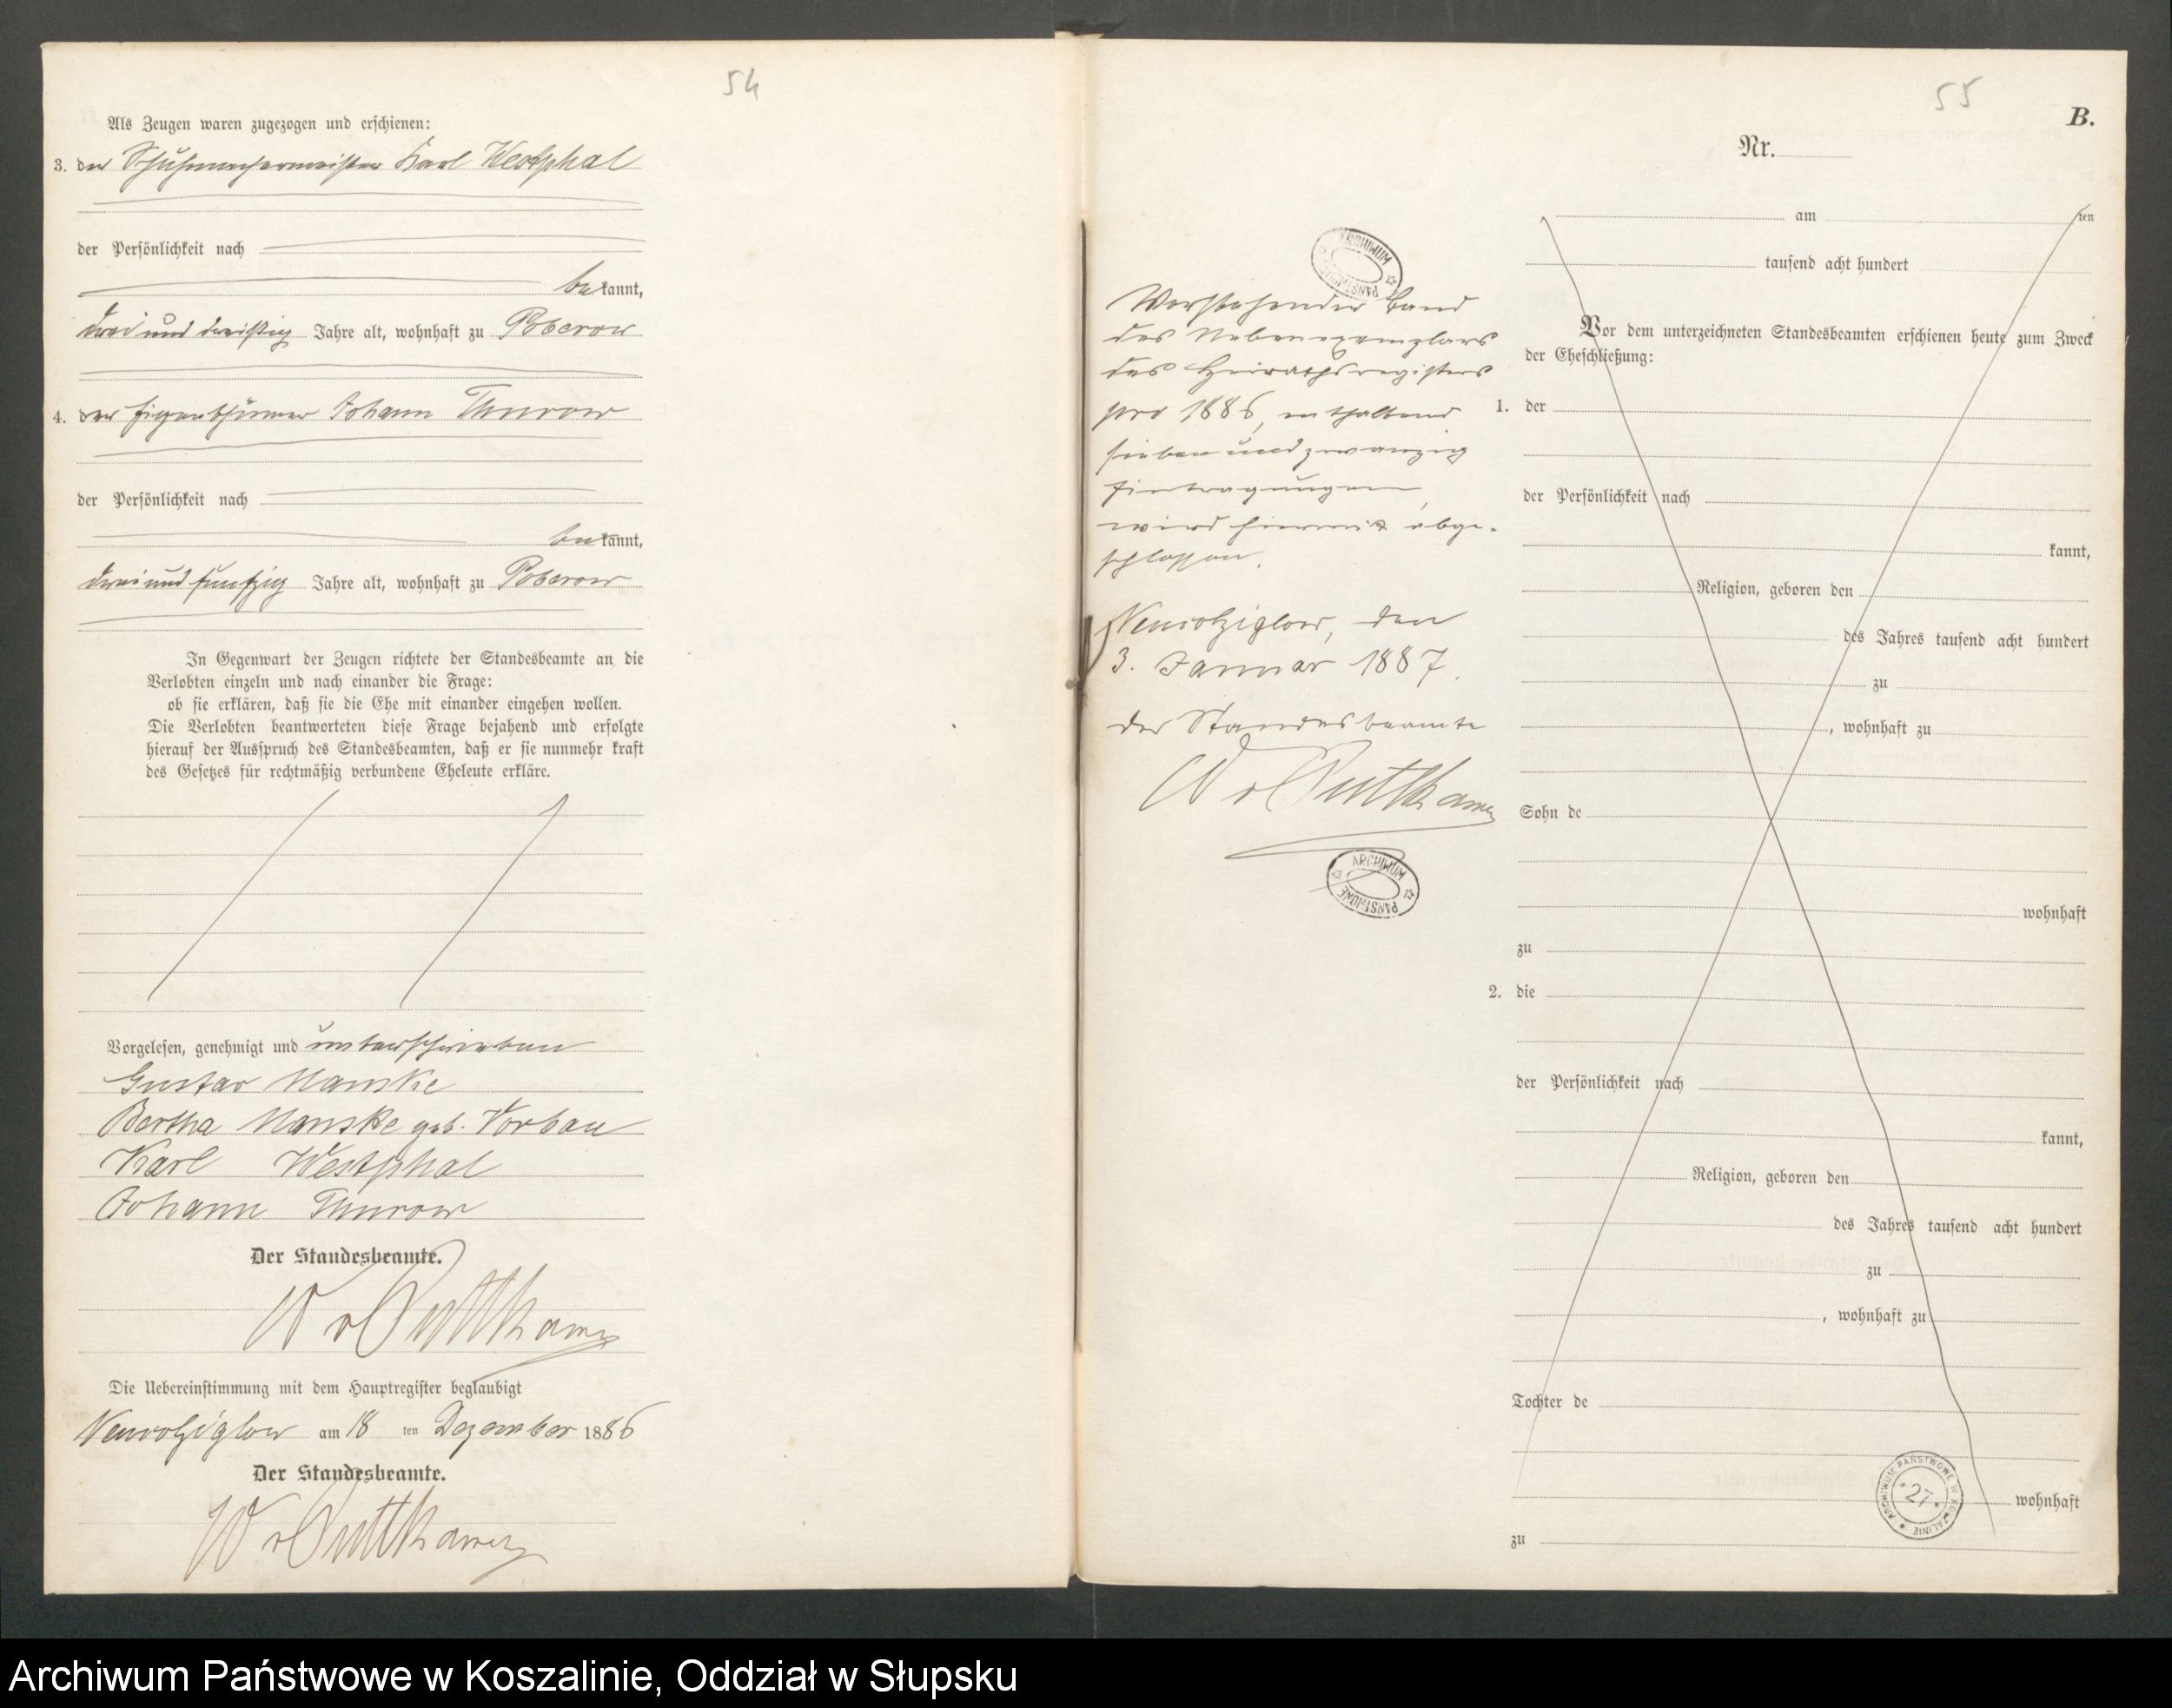 54
Als Zeugen waren zugezogen und erschienen:
3. der Schuhmachermeister Karl Westphal
der Persönlichkeit nach
bekannt,
drei und dreißig Jahre alt, wohnhaft zu Poberow
4. der Eigenthümer Johann Thurow
der Persönlichkeit nach
bekannt,
drei und fünfzig Jahre alt, wohnhaft zu Poberow
In Gegenwart der Zeugen richtete der Standesbeamte an die
Verlobten einzeln und nach einander die Frage:
ob sie erklären, daß sie die Ehe mit einander eingehen wollen.
Die Verlobten beantworteten diese Frage bejahend und erfolgte
hierauf der Ausspruch des Standesbeamten, daß er sie nunmehr kraft
des Gesetzes für rechtmäßig verbundene Eheleute erkläre.
Vorgelesen, genehmigt und unterschrieben
Gustav Manske
Bertha Manske geb. Vorbau
Karl Westphal
Johann Thurow
Der Standesbeamte.
W v Puttkamer
Die Uebereinstimmung mit dem Hauptregister beglaubigt
Neuvolziglow am 18 ten Dezember 1886
Der Standesbeamte.
W v Puttkamer
ARCHIWUM PAŃSTWOWE
Vorstehender Band
des Nebenexemplars
des Heirathsregisters
pro 1886, enthaltend
sieben und zwanzig
Eintragungen,
wird hiermit abge-
schlossen.
Neuvolziglow, den
3. Januar 1887.
Der Standesbeamte
W v Puttkamer
ARCHIWUM PAŃSTWOWE
55
B.
Nr.
am ten
tausend acht hundert
Vor dem unterzeichneten Standesbeamten erschienen heute zum Zweck
der Eheschließung:
1. der
der Persönlichkeit nach
kannt,
Religion, geboren den
des Jahres tausend acht hundert
zu
, wohnhaft zu
Sohn de
wohnhaft
zu
2. die
der Persönlichkeit nach
kannt,
Religion, geboren den
des Jahres tausend acht hundert
zu
, wohnhaft zu
Tochter de
wohnhaft
zu
ARCHIWUM PAŃSTWOWE W KOSZALINIE
*27*
Archiwum Państwowe w Koszalinie, Oddział w Słupsku